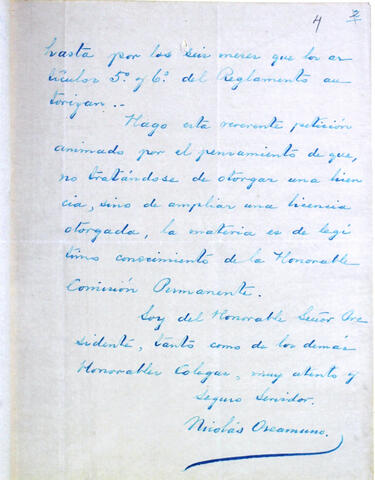 4 2
hasta por los seis meses que los ar
tículos 5º y 6º del Reglamento au
torizan..
Hago esta reverente petición
animado por el pensamiento de que,
no tratándose de otorgar una licen
cia, sino de ampliar una licencia
otorgada, la materia es de legí
timo conocimiento de la Honorable
Comisión Permanente.
Soy del Honorable Señor Pre
sidente, tanto como de los demás
Honorables Colegas, muy atento y
Seguro Servidor.
Nicolás Oreamuno.